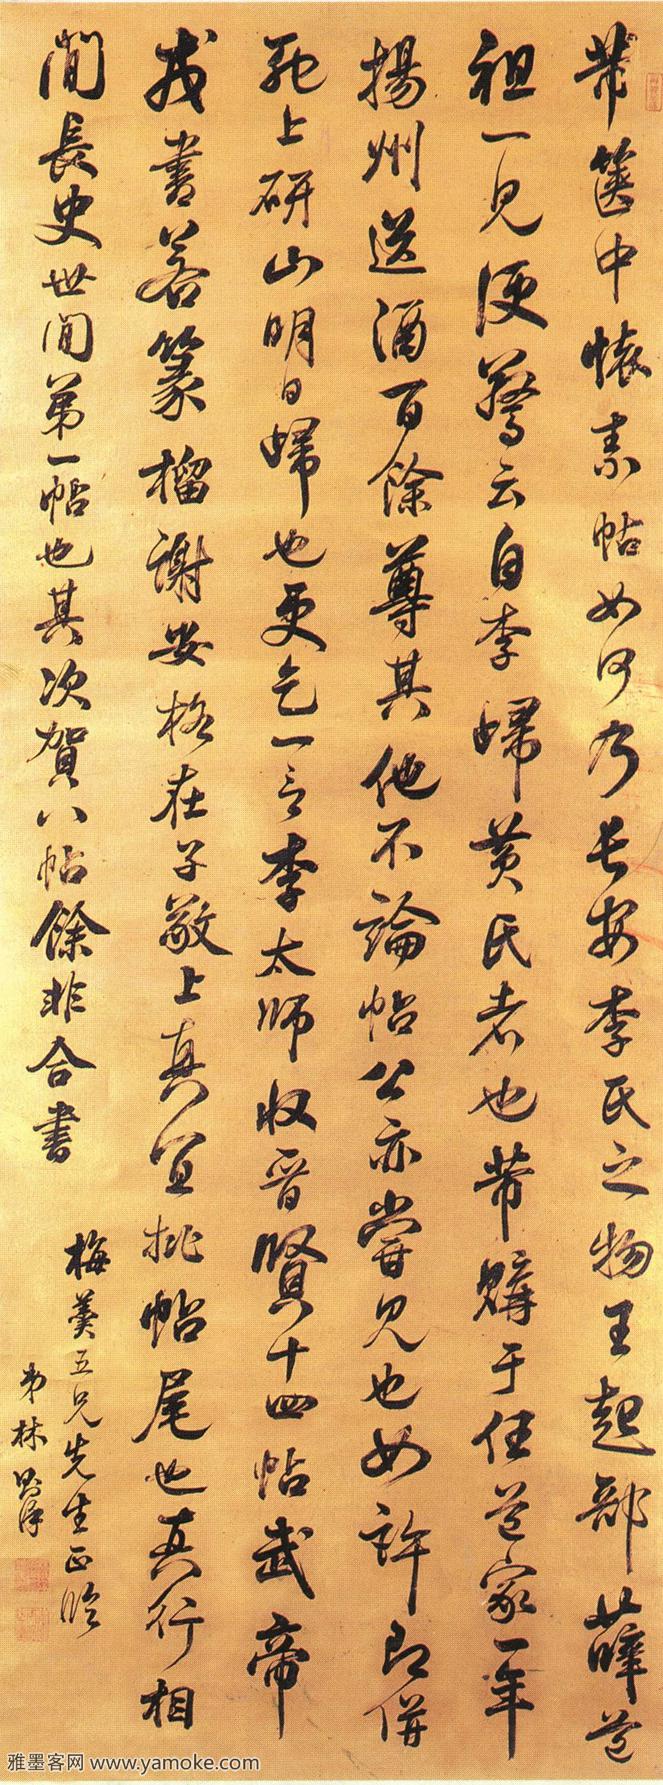 芾箧中懷素帖如何乃長安李氏之物王起部薛道
祖一見便驚云自李歸黃氏者也芾購于任道家一年
揚州送酒百餘尊其他不論帖公亦嘗見也如許即併
馳上研山明日歸也更乞一言李太師收晉賢十四帖武帝
戎書若篆榴謝安格在子敬上真宜批帖尾也真行相
間長史世間第一帖也其次賀八帖餘非合書
梅羹五兄先生正腕
弟林則徐
雅墨客网 www.yamoke.com